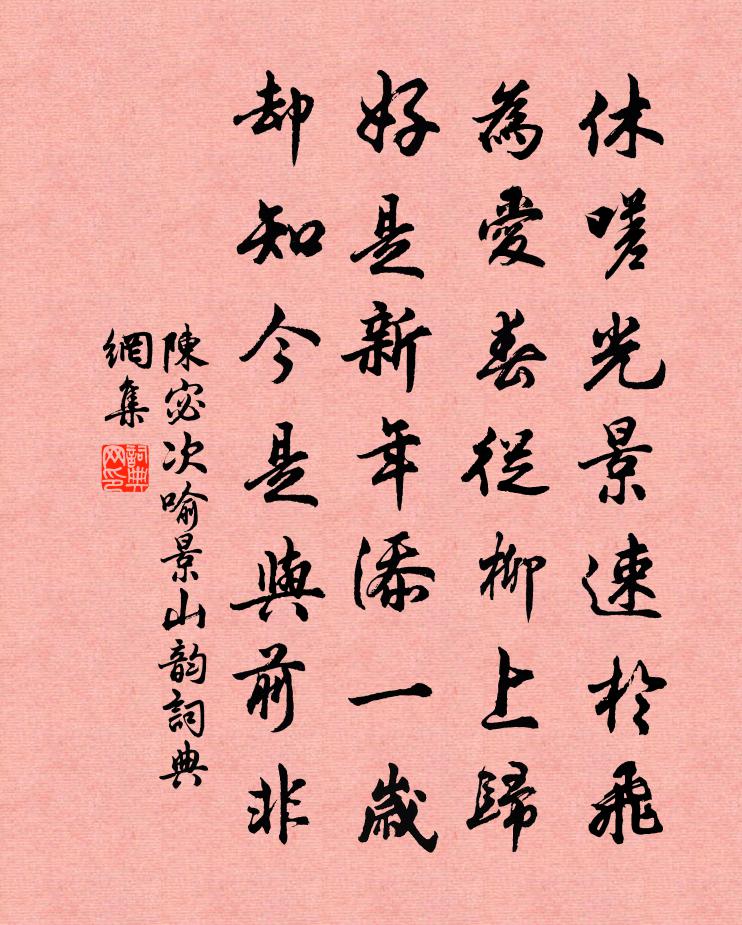 休嗟光景速於飛
為愛春從柳上歸
好是新年添一歲
却知今是與前非
陳宓次喻景山韵詞典
網集
詞典
网印